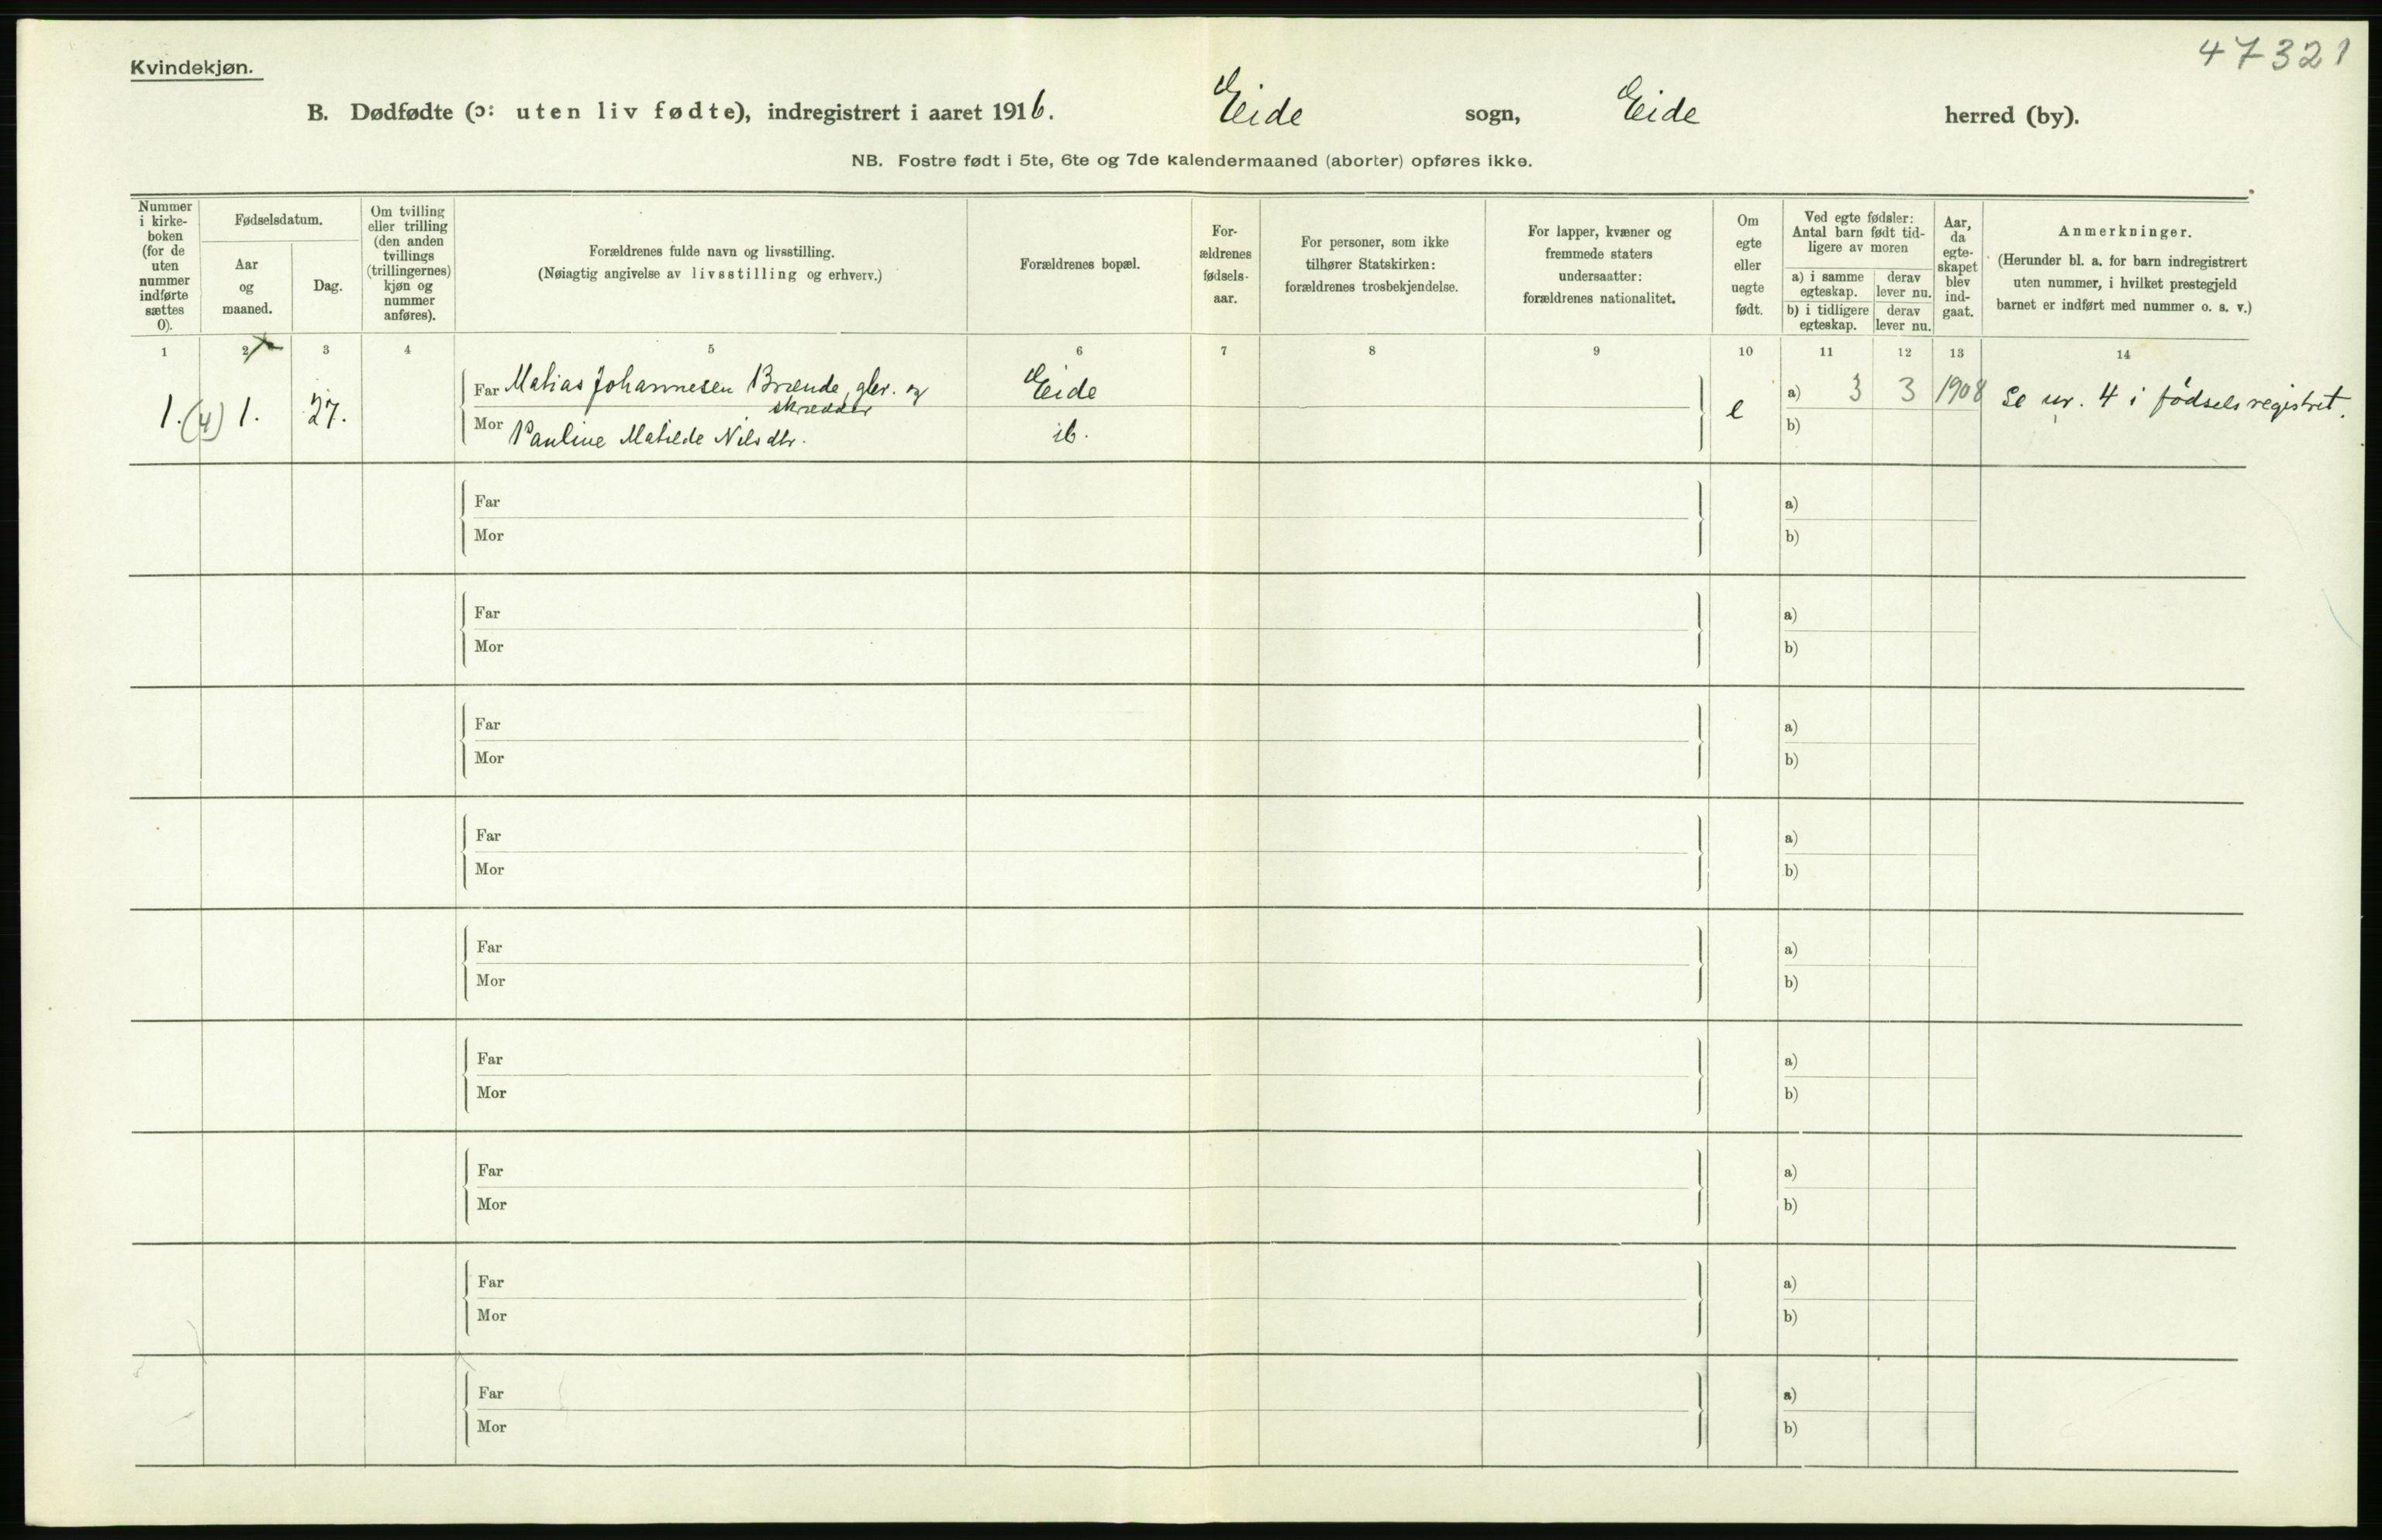 47321
Kvindekjøn.
B. Dødfødte (ɔ: uten liv fødte), indregistrert i aaret 1916. Eide sogn, Eide herred (by).
NB. Fostre født i 5te, 6te og 7de kalendermaaned (aborter) opføres ikke.
Nummer
i kirke-
boken
(for de
uten
nummer
indførte
sættes
0).
Fødselsdatum.
Aar
og
maaned.
Dag.
Om tvilling
eller trilling
(den anden
tvillings
(trillingernes)
kjøn og
nummer
anføres).
Forældrenes fulde navn og livsstilling.
(Nøiagtig angivelse av livsstilling og erhverv.)
Forældrenes bopæl.
For-
ældrenes
fødsels-
aar.
For personer, som ikke
tilhører Statskirken:
forældrenes trosbekjendelse.
For lapper, kvæner og
fremmede staters
undersaatter:
forældrenes nationalitet.
Om
egte
eller
uegte
født.
Ved egte fødsler:
Antal barn født tid-
ligere av moren
a) i samme
egteskap.
derav
lever nu.
b) i tidligere
egteskap.
derav
lever nu.
Aar,
da
egte-
skapet
blev
ind-
gaat.
Anmerkninger.
(Herunder bl. a. for barn indregistrert
uten nummer, i hvilket prestegjeld
barnet er indført med nummer o. s. v.)
1 2 3 4 5 6 7 8 9 10 11 12 13 14
1. (4) 1. 27. Far Matias Johannesen Brænde, glbr. og Eide e a) 3 3 1908 Se nr. 4 i fødselsregistret.
skrædder
Mor Pauline Matilde Nilsdtr. ib. b)
Far a)
Mor b)
Far a)
Mor b)
Far a)
Mor b)
Far a)
Mor b)
Far a)
Mor b)
Far a)
Mor b)
Far a)
Mor b)
Far a)
Mor b)
Far a)
Mor b)